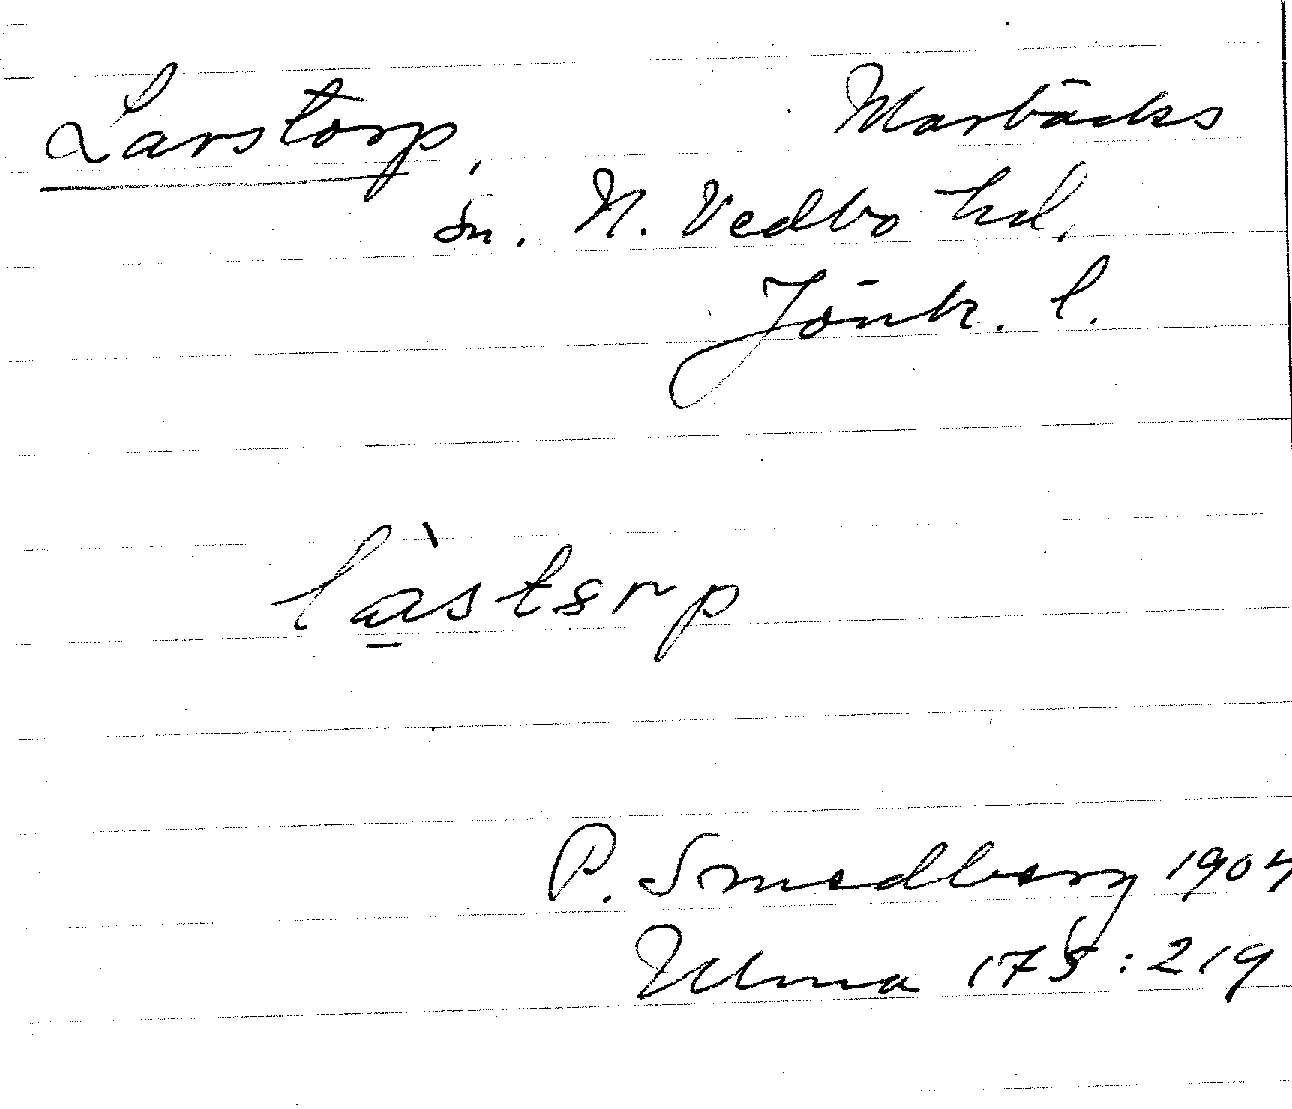 Larstorp, Marbäcks
sn. N. Vedbo hd.
Jönk. l.
làstərp
P. Smedberg 1904
Ulma 175:219